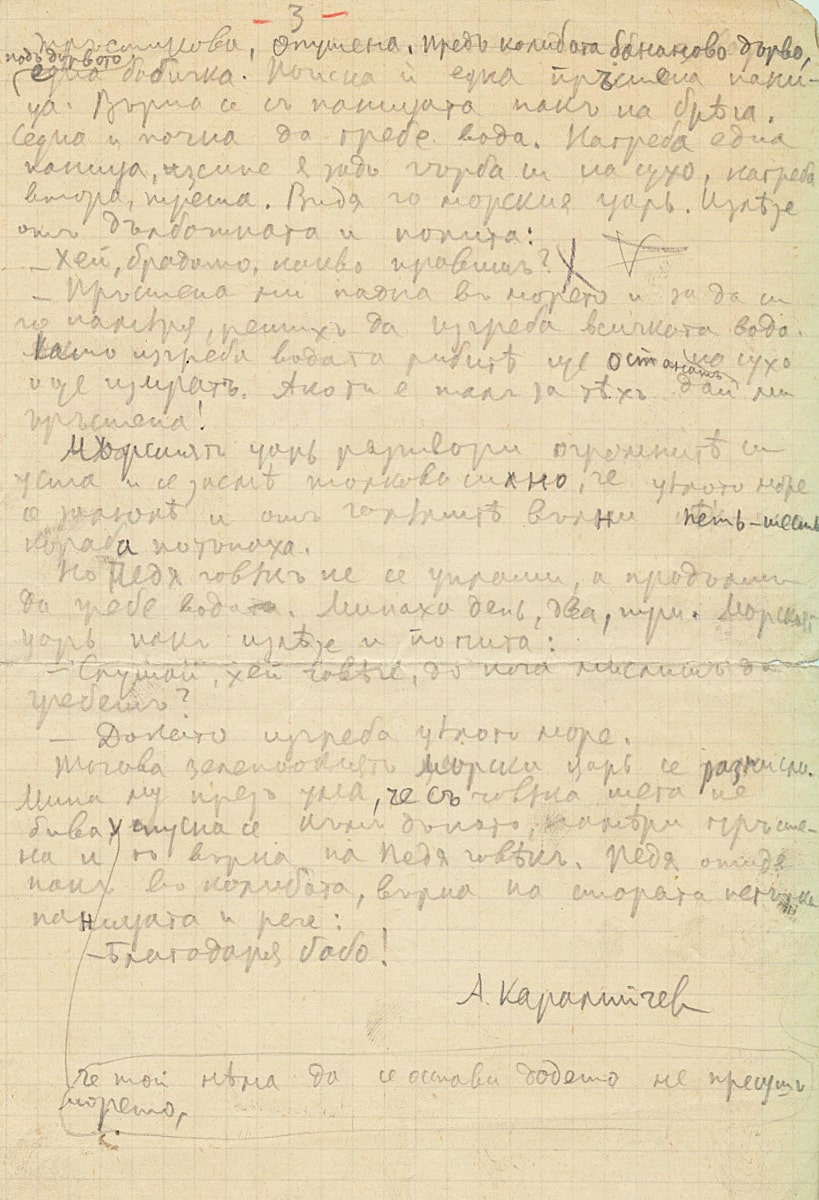 - 3 -
тръстикова, опушена. Предъ колибата бананово дърво,
подъ дървото
една бабичка. Поиска ѝ една пръстена пани-
ца. Върна се съ паницата пакъ на брѣга.
Седна и почна да гребе вода. Нагреба една
паница, изсипе я задъ гърба си на сухо, нагреба
втора, трета. Видя го морския царь. Излѣзе
отъ дълбочината и попита:
– Хей, брадато, какво правишъ?
– Пръстена ми падна въ морето и за да си
го намѣря, решихъ да изгреба всичката вода.
Като изгреба водата рибитѣ ще останатъ на сухо
и ще измратъ. Ако ти е жалъ за тѣхъ дай ми
пръстена!
Морскиятъ царь разтвори огромнитѣ си
уста и се засмѣ толкова силно, че цѣлото море
се залюлѣ и отъ голѣмитѣ вълни петь-шесть
кораба потънаха.
Но Педя човѣкъ не се уплаши, а продължи
да гребе водата. Минаха день, два, три. Морскиятъ
царь пакъ излѣзе и попита:
– Слушай, хей човѣче, до кога мислишъ да
гребешъ?
– Докато изгреба цѣлото море.
Тогава зеленоокиятъ морски царь се размисли.
Мина му презъ ума, че съ човѣка шега не
бива, спусна се къмъ дъното, намѣри пръсте-
на и го върна на Педя човѣкъ. Педя отиде
пакъ въ колибата, върна на старата
паницата и рече:
– Благодаря бабо!
А. Каралийчев
че той нѣма да се остави додето не пресуши
морето,